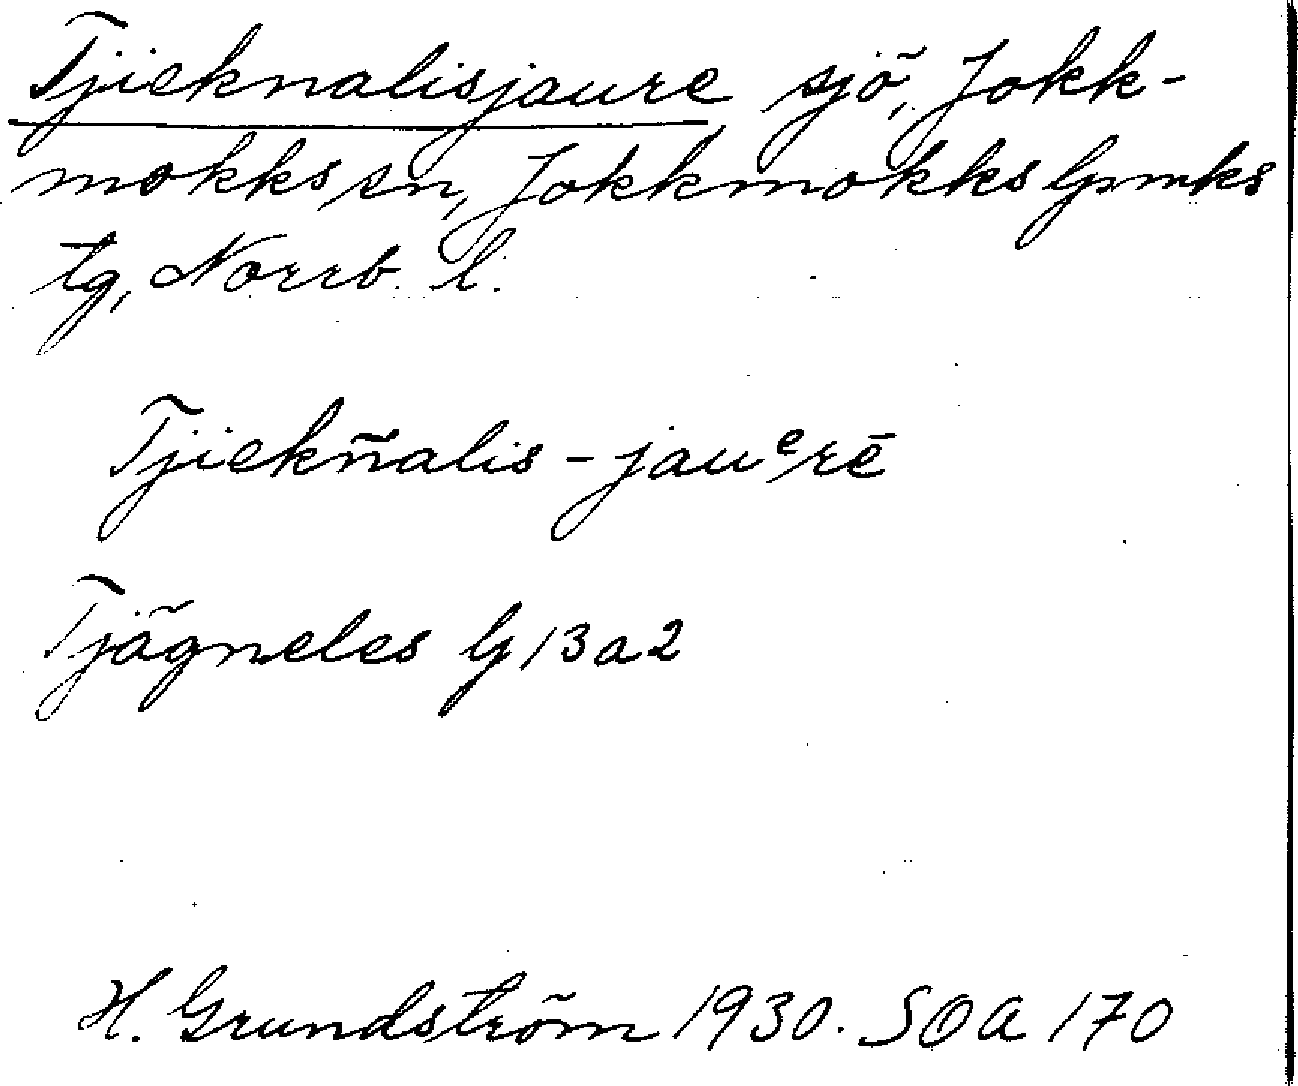 Tjieknalisjaure sjö, Jokk-
mokks sn, Jokkmokks lpmks
tg, Norrb. l.
Tjiekn̄alis-jauᵉrē
Tjägneles G 13 a 2
H. Grundström 1930. SOA 170